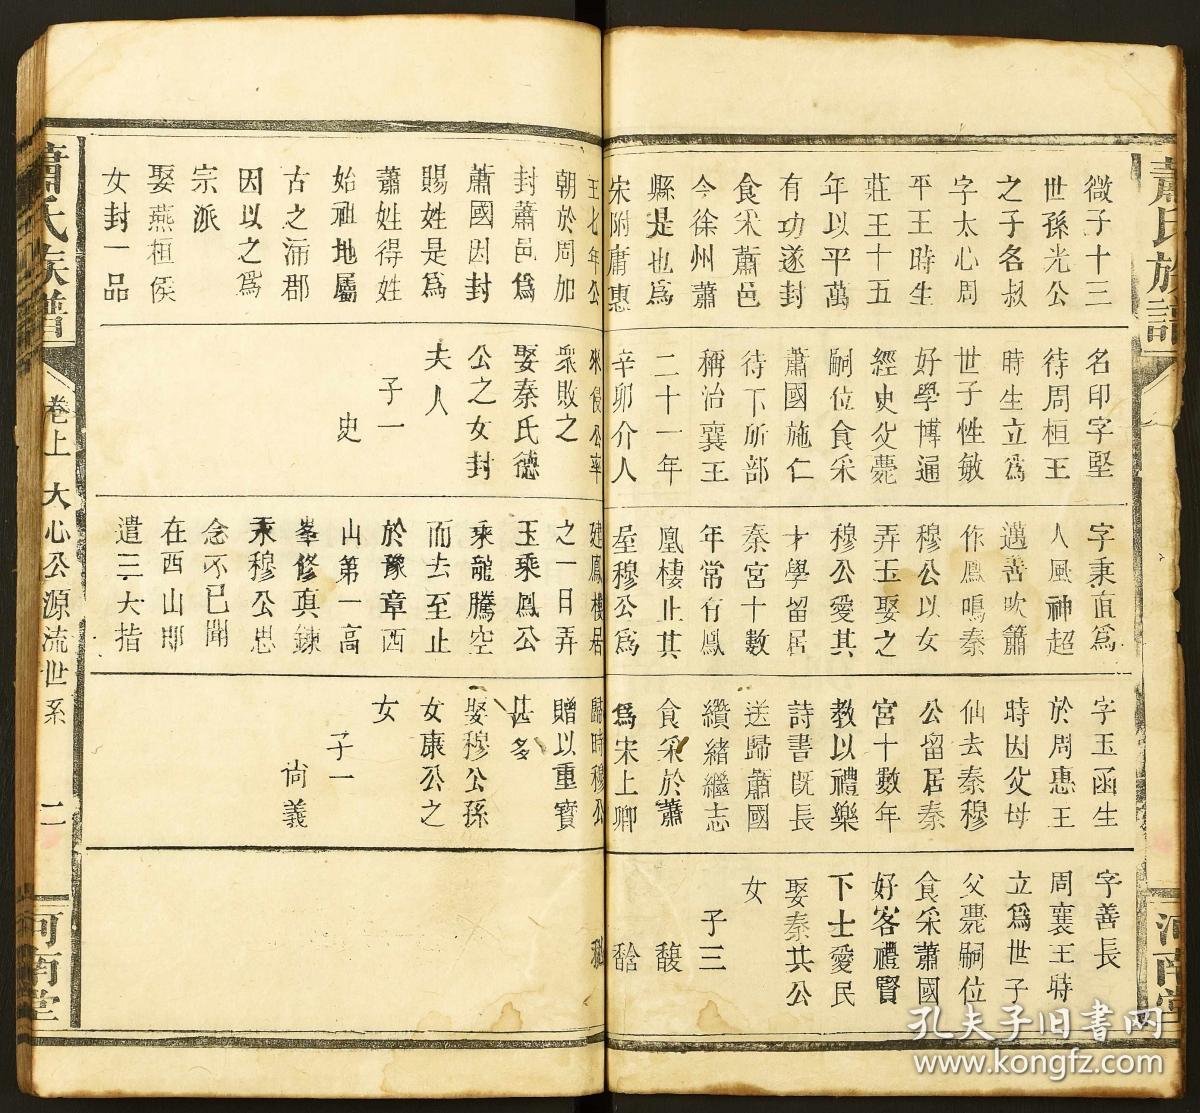 蕭氏族譜
河南堂
微子十三
世孫光公
之子名叔
字太心周
平王時生
莊王十五
年以平萬
有功遂封
食采蕭邑
今徐州蕭
縣是也為
宋附庸惠
王七年公
朝於周加
封蕭邑為
蕭國因封
賜姓是為
蕭姓得姓
始祖地屬
古之沛郡
因以之為
宗派
娶燕桓侯
女封一品
名印字堅
待周桓王
時生立為
世子性敏
好學博通
經史父薨
嗣位食采
蕭國施仁
待下所部
稱治襄王
二十一年
辛卯介人
來侵公率
眾敗之
娶秦氏德
公之女封
夫人
子一
史
字秉直為
人風神超
邁善吹簫
作鳳鳴秦
穆公以女
弄玉娶之
穆公愛其
才學留居
秦宮十數
年常有鳳
凰棲止其
屋穆公為
建鳳樓居
之一日弄
玉乘鳳公
乘龍騰空
而去至止
於豫章西
山第一高
峯修真鍊
汞穆公思
念不已聞
在西山即
遣三大指
字玉函生
於周惠王
時因父母
仙去秦穆
公留居秦
宮十數年
教以禮樂
詩書既長
送歸蕭國
纘緒繼志
食采於蕭
為宋上卿
歸時穆公
贈以重寶
甚多
娶穆公孫
女康公之
女
子一
尚義
字善長
周襄王時
立為世子
父薨嗣位
食采蕭國
好客禮賢
下士愛民
娶秦共公
女
子三
馥
馠
蕭氏族譜
卷上 大心公源流世系 二
河南堂
孔夫子旧书网
www.kongfz.com